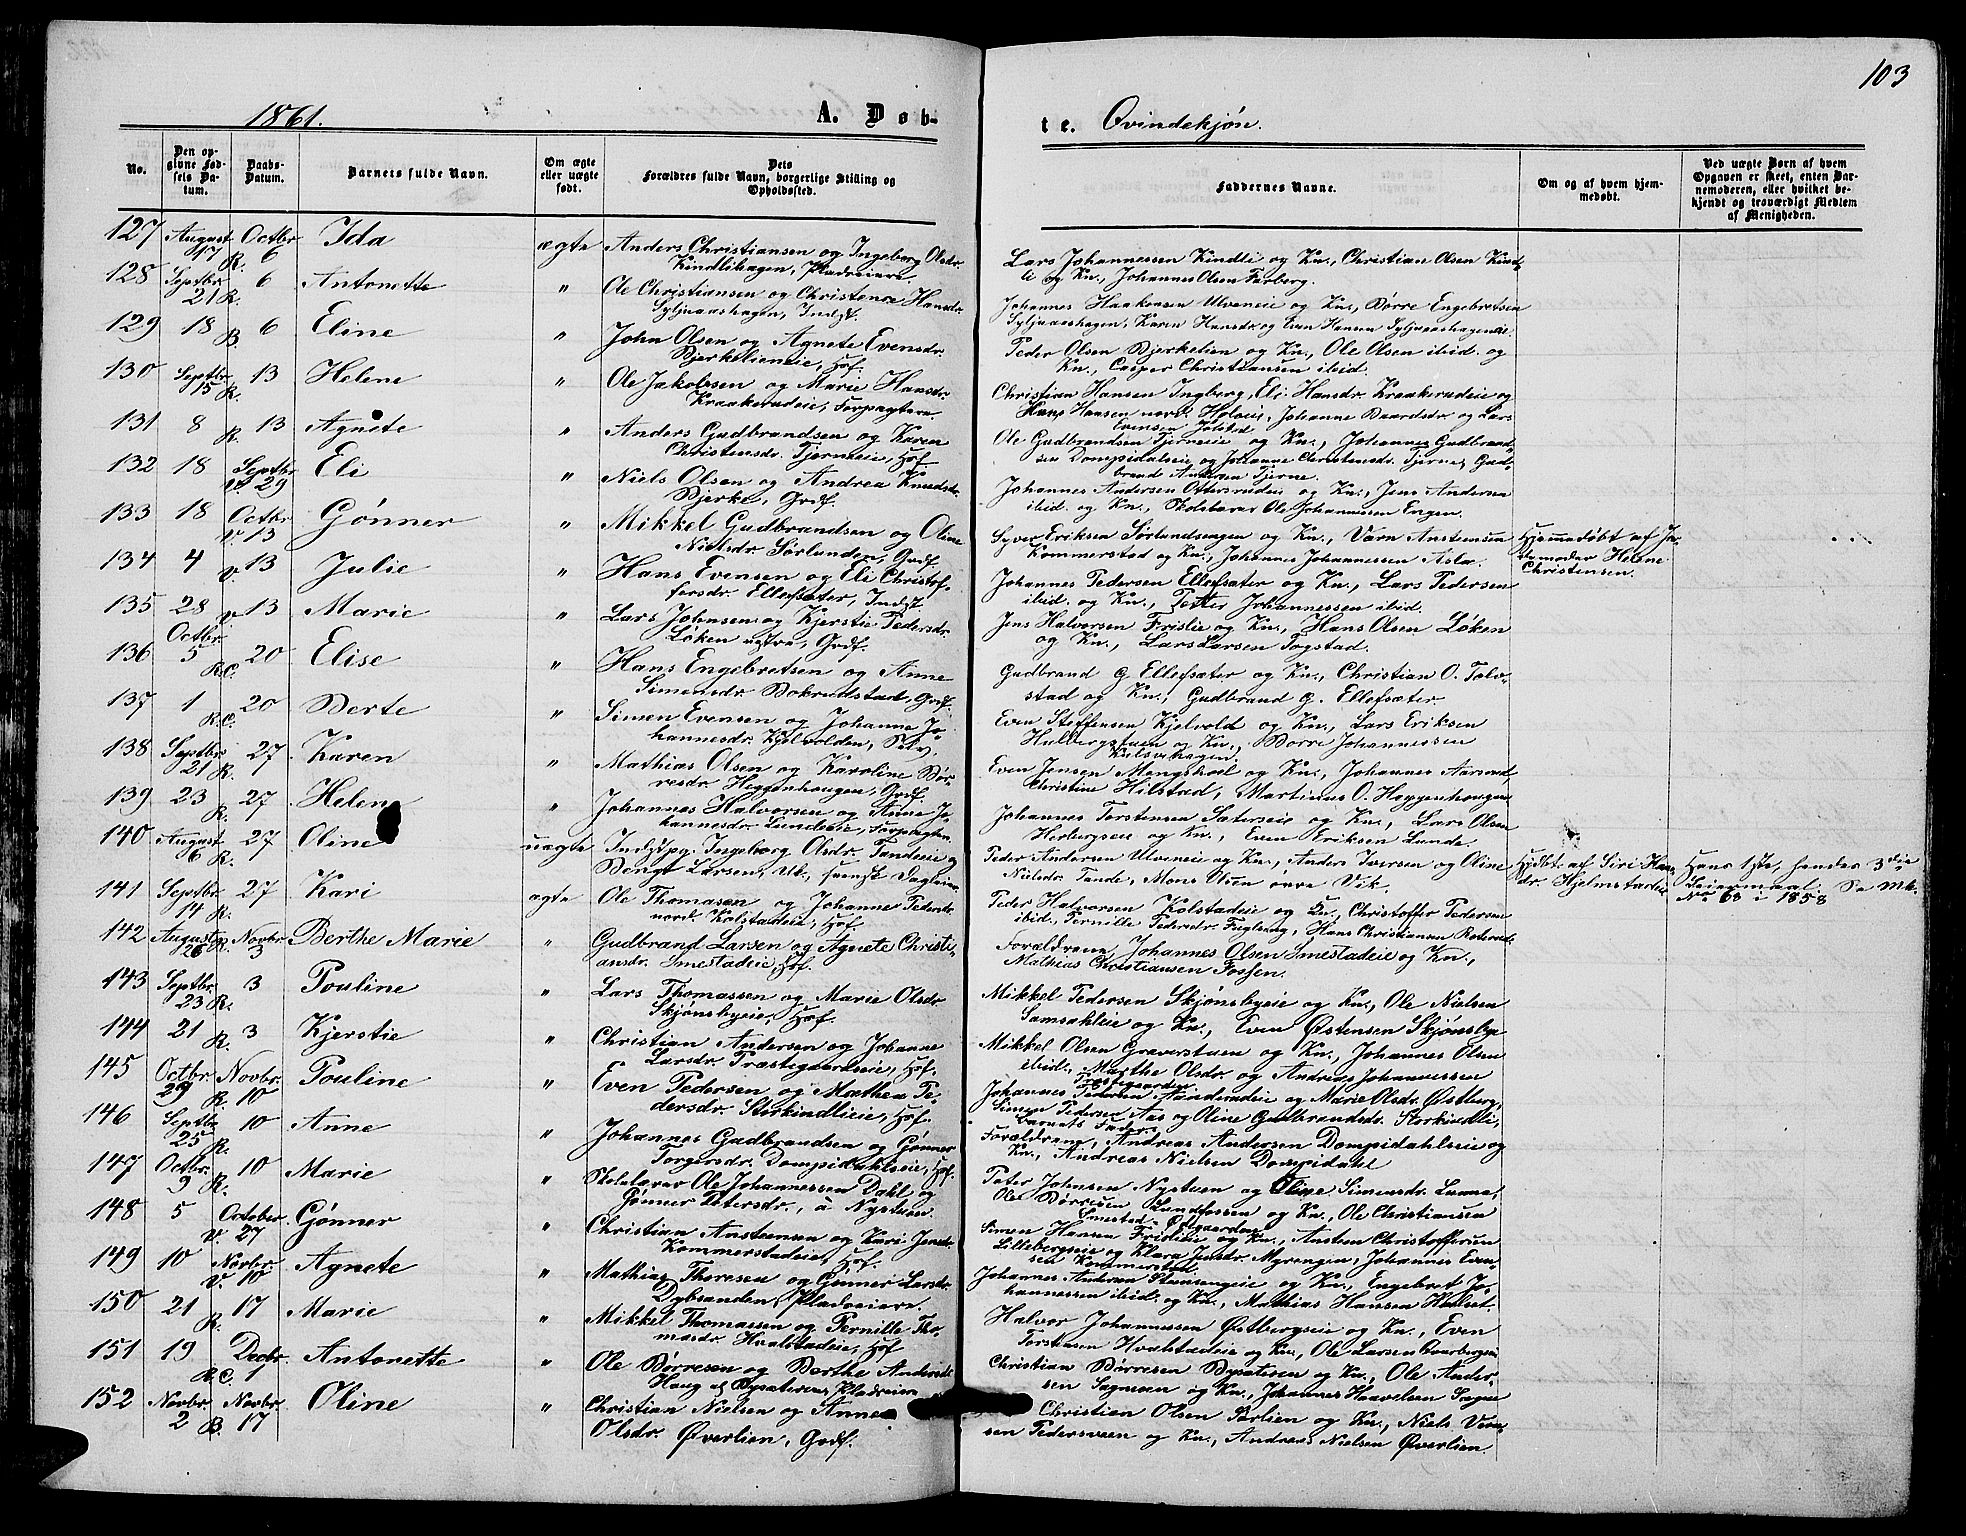 103
1861.
A. Døb-
te. Qvindekjøn.
No.
Den op-
givne Fød-
sels Da-
tum.
Daabs-
Datum.
Barnets fulde Navn.
Om ægte
eller uægte
født.
Dets
Forældres fulde Navn, borgerlige Stilling og
Opholdssted.
Faddernes Navne.
Om og af hvem hjem-
medøbt.
Ved uægte Børn af hvem
Opgaven er skeet, enten Bar-
nemoderen, eller hvilket be-
kjendt og troværdigt Medlem
af Menigheden.
127 August 17 R. Octbr. 6 Ida ægte Anders Christiansen og Ingeborg Olsdr.
Kindlihagen, Pladseiere.
Lars Johannessen Kindli og Kn., Christian Olsen Kind-
li og Kn., Johannes Olsen Farberg.
128 Septbr. 21 R. 6 Antonette " Ole Christiansen og Christence Hansdr.
Syljuaashagen, Indst.
Johannes Haakensen Ulveneie og Kn., Børre Engebretsen
Syljuaashagen, Karen Hansdr. og Even Hansen Syljuaashageneie
129 18 B. 6 Eline " John Olsen og Agnete Evensdr.
Bjerkelieneie, Hsf.
Peder Olsen Bjerkelien og Kn., Ole Olsen ibid. og
Kn., Casper Christiansen ibid.
130 Septbr. 15 R. 13 Helene " Ole Jakobsen og Marie Hansdr.
Kraakerudeie, Forpagtere.
Christian Hansen Ingberg, Eli Hansdr. Kraakerudeie og
Hans Hansen nord. Holveie, Johanne Baardsdr. og Lars
Evensen Jolstad
131 8 R. 13 Agnete " Anders Gudbrandsen og Karen
Christensdr. Tjerneie, Hsf.
Ole Gudbrandsen Tjerneie og Kn., Johannes Gudbrand-
sen Dompidalseie og Johanne Christensdr. Tjerne, Gud-
brand Andersen Tjerne.
132 18 Septbr. V. 29 Eli " Niels Olsen og Andrea Knudsdr.
Bjerke, Grdf.
Johannes Andersen Ottersrudeie og Kn., Jens Andersen
ibid. og Kn., Skolelærer Ole Johannessen Engen.
133 18 Octbr. V. 13 Gønner " Mikkel Gudbrandsen og Oline
Nielsdr. Sørlunden, Grdf.
Syver Eriksen Sørlundsengen og Kn., Varn Anstensen
Kommerstad og Kn., Johannes Johannessen Asla.
Hjemmedøbt af Jor-
demoder Helene
Christensen.
134 4 V. 13 Julie " Hans Evensen og Eli Christof-
fersdr. Ellefsæter, Indst.
Johannes Pedersen Ellefsæter og Kn., Lars Pedersen
ibid. og Kn., Petter Johannessen ibid.
135 28 V. 13 Marie " Lars Johnsen og Kjerstie Pedersdr.
Løken vestre, Grdf.
Jens Halvorsen Frislie og Kn., Hans Olsen Løken
og Kn., Lars Larsen Fogstad.
136 Octbr. 5 R.C. 20 Elise " Hans Engebretsen og Anne
Simensdr. Bokrudstad, Grdf.
Gudbrand G. Ellefsæter og Kn., Christian O. Tolv-
stad og Kn., Gudbrand G. Ellefsæter.
137 1 R.C. 20 Berte " Simen Evensen og Johanne Jo-
hannesdr. Kjelvolden, Selv.
Even Steffensen Kjelvold og Kn., Lars Eriksen
Hulbergstuen og Kn., Børre Johannessen
Kulsvehagen.
138 Septbr. 21 R. 27 Karen " Mathias Olsen og Karoline Bør-
resdr. Heggenhougen, Grdf.
Even Jensen Mengshoel og Kn., Johannes Aarsrud,
Christine Hilstad, Martinus O. Heggenhougen
139 23 R. 27 Helene " Johannes Halvorsen og Anne Jo-
hannesdr. Lundeeie, Forpagtere.
Johannes Torstensen Sæterseie og Kn., Lars Olsen
Horbergseie og Kn., Even Eriksen Lunde.
140 August 6 R. 27 Oline uægte Indst.pg. Ingeborg Olsdr. Tandeeie og
Bengt Larsen, Uk., svensk Dagleier.
Peder Andersen Ulveneie og Kn., Anders Iversen og Oline
Nielsdr. Tande, Mons Olsen øvre Vik.
Hjdbt. af Siri Han-
dr. Hjelmstadeie
Hans 1ste, hendes 3die
Leiermaal. Se Mk.
No 63 i 1858
141 Septbr. 14 R. 27 Kari ægte Ole Thomasen og Johanne Pedersdr.
nord. Kolstadeie, Hsf.
Peder Halvorsen Kolstadeie og Kn., Christoffer Pedersen
ibid., Pernille Pedersdr. Fuglseng, Hans Christiansen Roterud.
142 August 26 R. Novbr. 3 Berthe Marie " Gudbrand Larsen og Agnete Christi-
ansdr. Smestadeie, Hsf.
Forældrene, Johannes Olsen Smestadeie og Kn.,
Mathias Christiansen Fossen.
143 Septbr. 23 R. 3 Pouline " Lars Thomassen og Marie Olsdr.
Skjønsbyeie, Hsf.
Mikkel Pedersen Skjønsbyeie og Kn., Ole Nielsen
Samsahleie og Kn., Even Østensen Skjønsbye
144 21 R. 3 Kjerstie " Christian Andersen og Johanne
Larsdr. Præstegaardseie, Hsf.
Mikkel Olsen Graverstuen og Kn., Johannes Olsen
ibid., Marthe Olsdr. og Andreas Johannessen
Præstegaarden
145 Octbr. 29 R. Novbr. 10 Pouline " Even Pedersen og Mathea Pe-
dersdr. Storkindlieie, Hsf.
Johannes Pedersen Aanderudeie og Marie Olsdr. Østberg,
Simen Pedersen Aas og Oline Gudbrandsdr. Storkindli,
Barnets Fader.
146 Septbr. 25 R. 10 Anne " Johannes Gudbrandsen og Gønner
Torgersdr. Dompidahlseie, Hsf.
Forældrene, Andreas Andersen Dompidahlseie og
Kn., Andreas Nielsen Dompidahl
147 Octbr. 9 R. 10 Marie " Skolelærer Ole Johannessen Dahl og
Gønner Petersdr., a Nystuen.
Peter Johnsen Nystuen og Oline Simensdr. Lunne,
Ole Børresen Lundfossen og Kn., Ole Christiansen
Smestad-Ødegaarden
148 5 October V. 27 Gønner " Christian Anstensen og Kari Jensdr.
Kommerstadeie, Hsf.
Simen Hansen Frislieie og Kn., Ansten Christoffersen
Lillebergseie og Klara Jensdr. Myrengen, Johannes Even-
sen Kommerstad.
149 10 Novbr. V. 10 Agnete " Mathias Thoresen og Gunner Larsdr.
Dybsanden, Pladseiere.
Johannes Andersen Stensengeie og Kn., Engebret Jo-
hannessen ibid. og Kn., Mathias Hansen Holset.
150 21 R. 17 Marie " Mikkel Thomassen og Pernille Tho-
masdr. Hvalstadeie, Hsf.
Halvor Johannessen Østbergseie og Kn., Even
Torstensen Hvalstadeie og Kn., Ole Larsen
151 19 R.C. Decbr. 1 Antonette " Ole Børresen og Berthe Andersdr.
Haug af Bysætersen, Pladseiere
Christian Børresen Bysætesen og Kn., Ole Ander-
sen Sagneøen og Kn., Johannes Haavelsen Sagne
152 Novbr. 2 B. Novbr. 17 Oline " Christian Nielsen og Anne
Olsdr. Øverlien, Grdf.
Christien Olsen Sørlien og Kn., Niels
sen Pedersveen og Kn., Andreas Nielsen Øverlien.